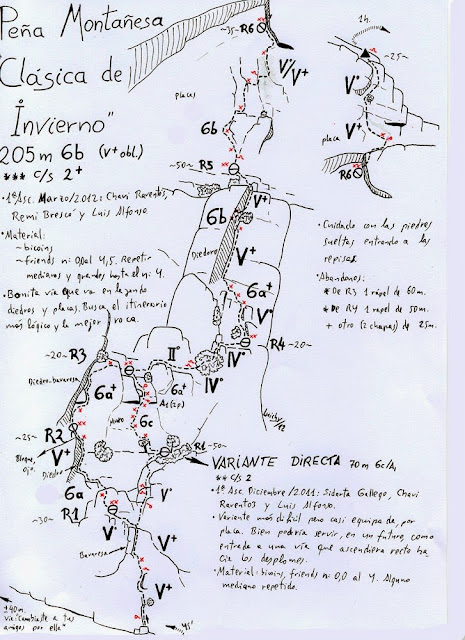 Peña Montañesa
"Clásica de
Invierno"
205m 6b (V+obl.)
*** c/s 2+
·1ª Asc. Marzo/2012: Chavi Raventos,
Remi Bresco y Luis Alfonso.
·Material:
~ bicoins
~friends n: 0,0 al 4,5. Repetir
medianos y grandes hasta el nº 4.
·Bonita vía que va enlazando
diedros y placas. Busca el itinerario
más lógico y la mejor roca.
~35~ R6
V°/V+
placas
6b
~50~ R5
V+
6b
Diedro
V+
6a+
V°
R4 ~20~
IV°
IV°
II°
~20~ R3
Diedro-bavaresa
6a+
6a+
A1(2p)
Huevo
6c
~25~ R2
V+
Bloque
ojo.
Diedro
6a
R1
~30~
R1 ~50~
V°
V°
Bavaresa
V°
V+
V+
45'
140m.
vía: "Cambiaste a tus
amigos por ella"
1h.
~25~
V°
V+
placa
R6
·Cuidado con las piedras
sueltas entrando a las
repisas.
·Abandonos:
* De R3 1 rápel de 60m.
* De R4 1 rapel de 50m.
+ otro (2 chapas) de 25m.
VARIANTE DIRECTA 70m 6c/A1
** c/s 2
·1ª Asc. Diciembre/2011: Sidarta Gallego, Chavi
Raventos y Luis Alfonso.
·Variante más difícil pero casi equipada, por
placa. Bien podría servir, en un futuro, como
entrada a una vía que ascendiera recto ha
cia los desplomes.
·Material: bicoins, friends nº 0,0 al 4. Alguno
mediano repetido.